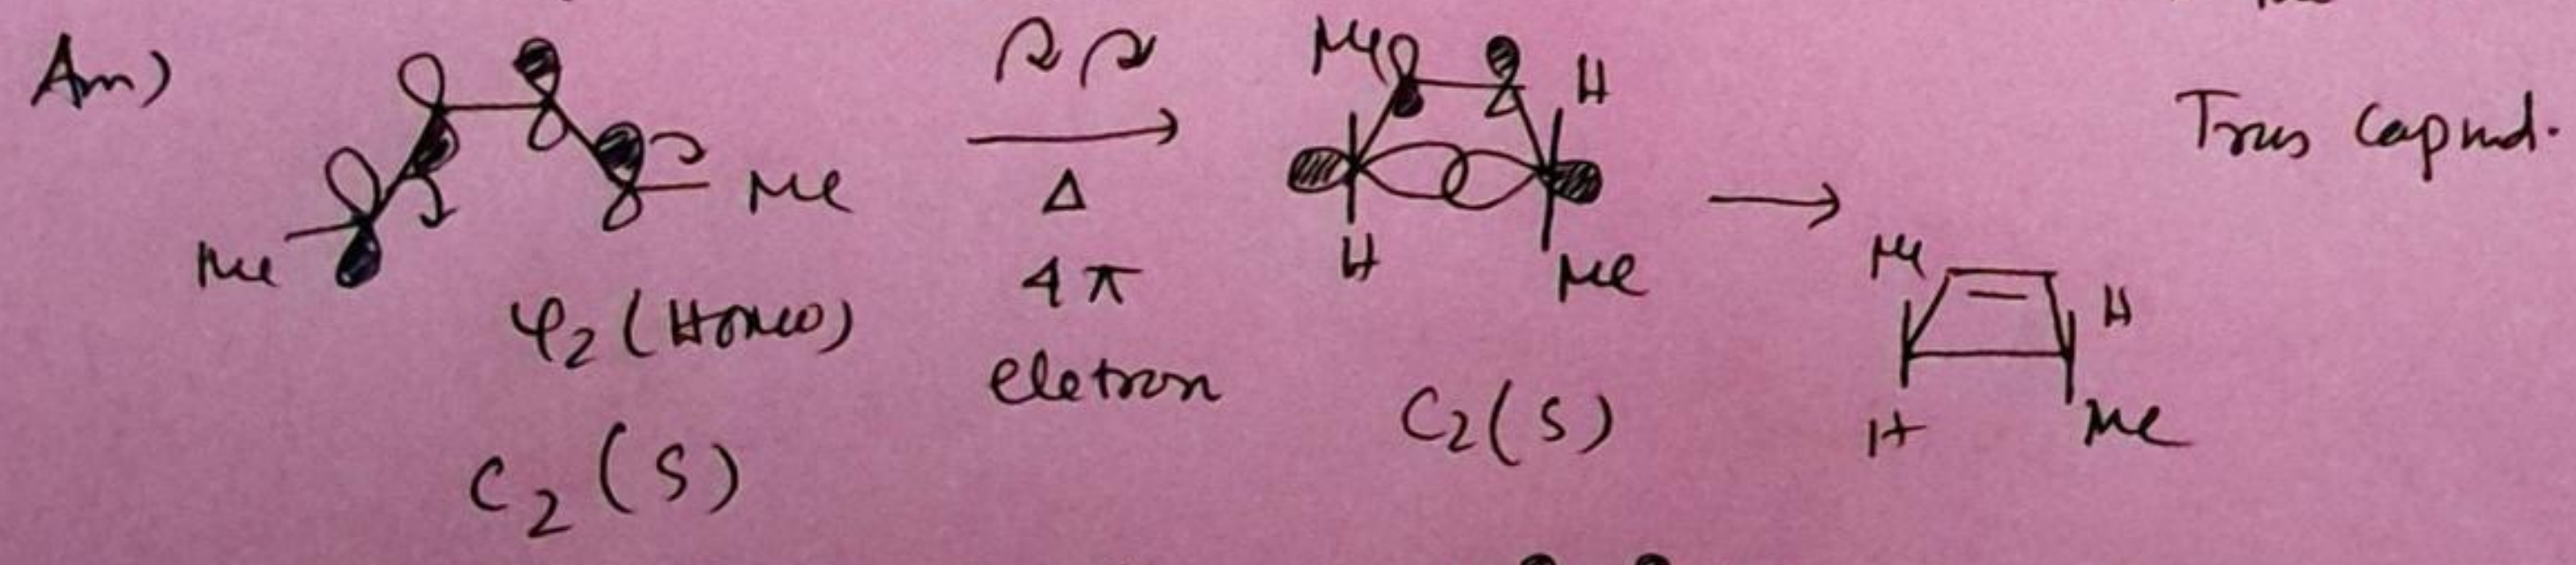 Am)
Me
Me
Ψ2 (Homo)
C2 (S)
Δ
4 π
eletron
Me
H
H
Me
C2 (S)
Me
H
H
Me
Trus Capnd.